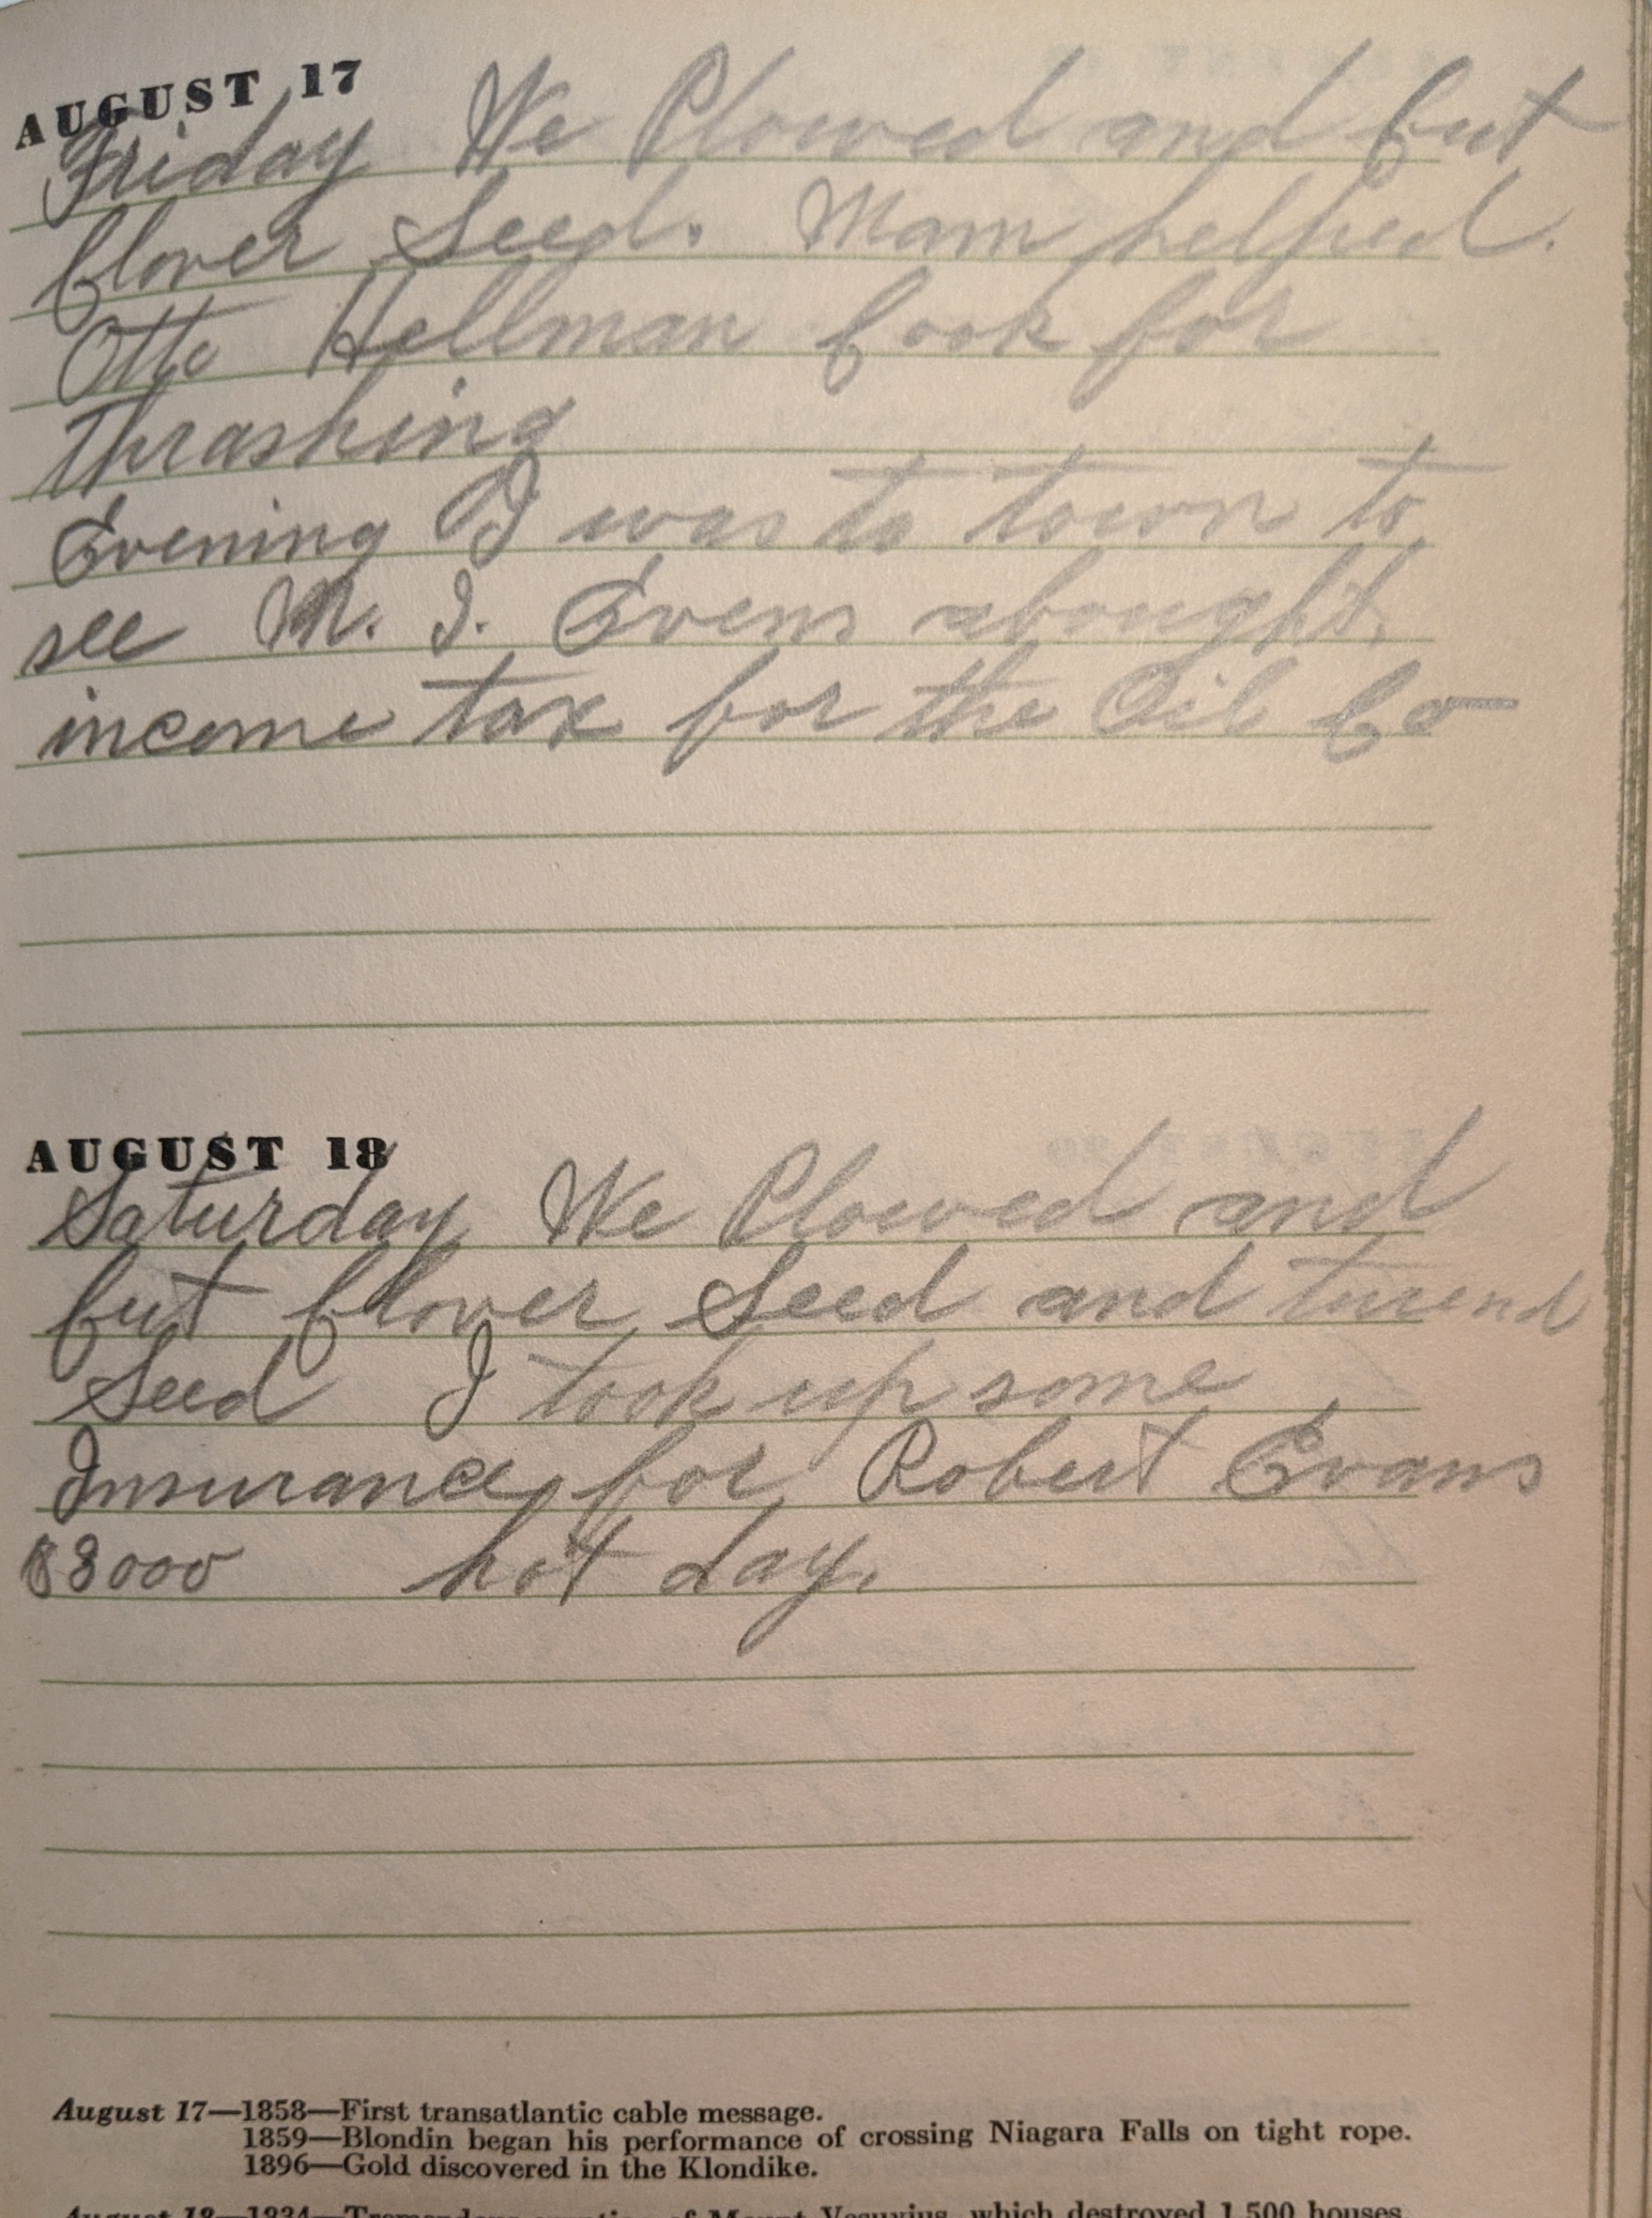 AUGUST 17
Friday We Plowed and Cut
Clover Seed. Mam helped.
Otto Hellman Cook for
thrashing
Evening I was to town to
see M. I. Evens abought
income tax for the Oil Co
AUGUST 18
Saturday We Plowed and
Cut Clover Seed and turend
Seed I took up some
Insurance for Robert Evans
$8000 hot day.
August 17—1858—First transatlantic cable message.
1859—Blondin began his performance of crossing Niagara Falls on tight rope.
1896—Gold discovered in the Klondike.
August 18—1834—Tremendous eruption of Mount Vesuvius, which destroyed 1,500 houses.